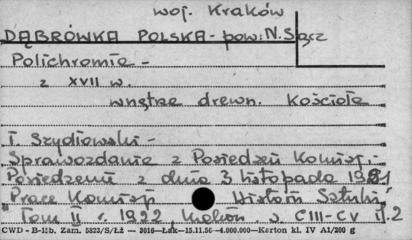 woj. Kraków
DĄBRÓWKA POLSKA - pow: N. Sącz
Polichromie -
z XVII w.
wnętrze drewn. Kościoła
T. Szydłowski -
Sprawozdanie z Posiedzeń Komisj.:
Posiedzenie z dnia 3 listopada 1921
"Prace Komisji Historii Sztuki"
Tom II r. 1922, Kraków, s. CIII-CV il. 2
CWD - B-11b. Zam. 5823/S/Łż — 3016—Łsk—15.11.56 —4.000.000—Karton kl. IV A1/200 g